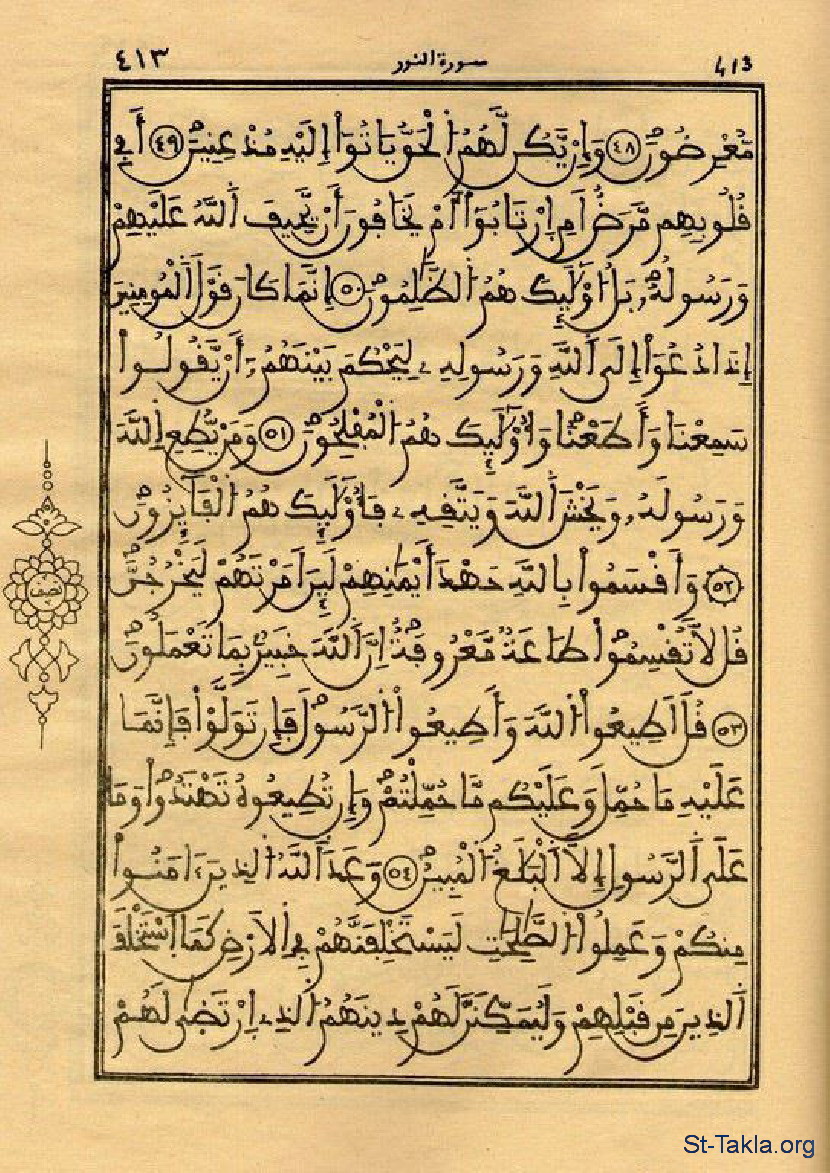 ٤١٣ سورة النور 413
مُّعْرِضُونَ ٤٨ وَإِنْ يَّكُن لَّهُمُ الْحَقُّ يَاتُوٓاْ إِلَيْهِ مُذْعِنِينَ ٤٩ أَفِے
قُلُوبِهِم مَّرَضٌ أَمِ اِرْتَابُوٓاْ أَمْ يَخَافُونَ أَنْ يَّحِيفَ اَللَّهُ عَلَيْهِمْ
وَرَسُولُهُۥ بَلُ اوْلَٰٓئِكَ هُمُ الظَّٰلِمُونَ ٥٠ إِنَّمَا كَانَ قَوْلَ اَلْمُومِنِينَ
إِذَا دُعُوٓاْ إِلَى اَللَّهِ وَرَسُولِهِۦ لِيَحْكُمَ بَيْنَهُمُۥٓ أَنْ يَّقُولُواْ
سَمِعْنَا وَأَطَعْنَا وَأُوْلَٰٓئِكَ هُمُ الْمُفْلِحُونَ ٥١ وَمَنْ يُّطِعِ اِللَّهَ
وَرَسُولَهُۥ وَيَخْشَ اَللَّهَ وَيَتَّقِهِۦ فَأُوْلَٰٓئِكَ هُمُ الْفَآئِزُونَ
٥٢ وَأَقْسَمُواْ بِاللَّهِ جَهْدَ أَيْمَٰنِهِمْ لَئِنَ اَمَرْتَهُمْ لَيَخْرُجُنَّ
قُل لَّا تُقْسِمُواْ طَاعَةٌ مَّعْرُوفَةٌ اِنَّ اَللَّهَ خَبِيرٌ بِمَا تَعْمَلُونَ
٥٣ قُلَ اَطِيعُواْ اللَّهَ وَأَطِيعُواْ الرَّسُولَ فَإِن تَوَلَّوْاْ فَإِنَّمَا
عَلَيْهِ مَا حُمِّلَ وَعَلَيْكُم مَّا حُمِّلْتُمْ وَإِن تُطِيعُوهُ تَهْتَدُواْ وَمَا
عَلَى اَلرَّسُولِ إِلَّا اَلْبَلَٰغُ الْمُبِينُ ٥٤ وَعَدَ اَللَّهُ الذِينَ ءَامَنُواْ
مِنكُمْ وَعَمِلُواْ الصَّٰلِحَٰتِ لَيَسْتَخْلِفَنَّهُمْ فِے اِلَارْضِ كَمَا اَسْتَخْلَفَ
اَلذِينَ مِن قَبْلِهِمْ وَلَيُمَكِّنَنَّ لَهُمْ دِينَهُمُ الذِے اِرْتَضَىٰ لَهُمْ
نصف
St-Takla.org